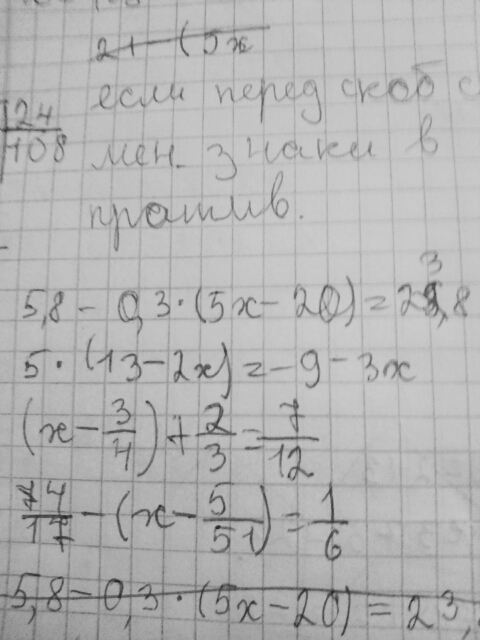 2 + (5x
если перед скоб с
124
108
мен. знаки в
против.
5,8 - 0,3·(5x - 20) = 23,8
5·(13 - 2x) = -9 - 3x
(x - 3/4) + 2/3 = 7/12
14/17 - (x - 5/51) = 1/6
5,8 - 0,3·(5x - 20) = 23,